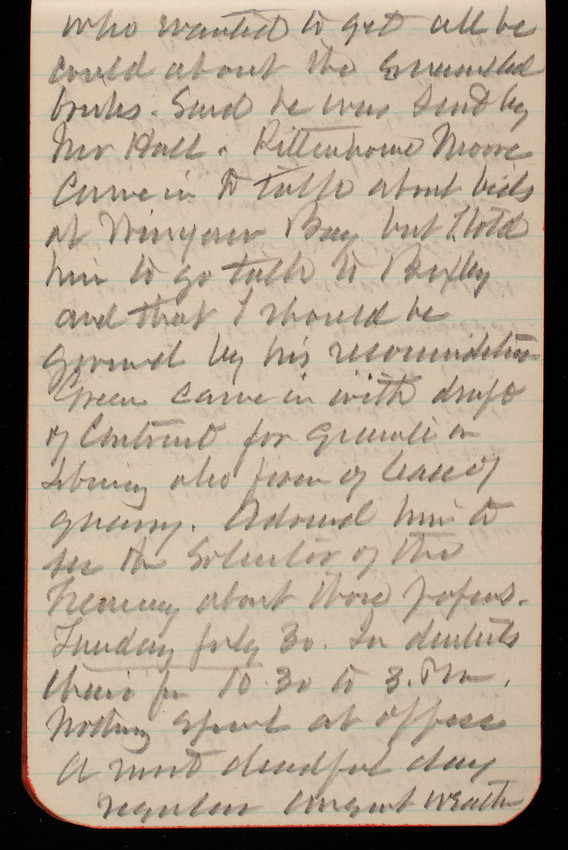 who wanted to get all he
could about the enamelled
bricks. Said he was send by
Mr Hall. Rittenhouse Moore
came in to talk about bids
at Winyaw Bay but I told
him to go talk to Bixby
and that I should be
governed by his recommendation
Green came in with draft
of Contract for granite on
Library also form of lease of
quarry. Advised him to
see the Solicitor of the
Treasury about those papers.
Tuesday July 30. In dentists
chair from 10.30 to 3. P.m.
Nothing special at office
A most dreadful day
regular August weather